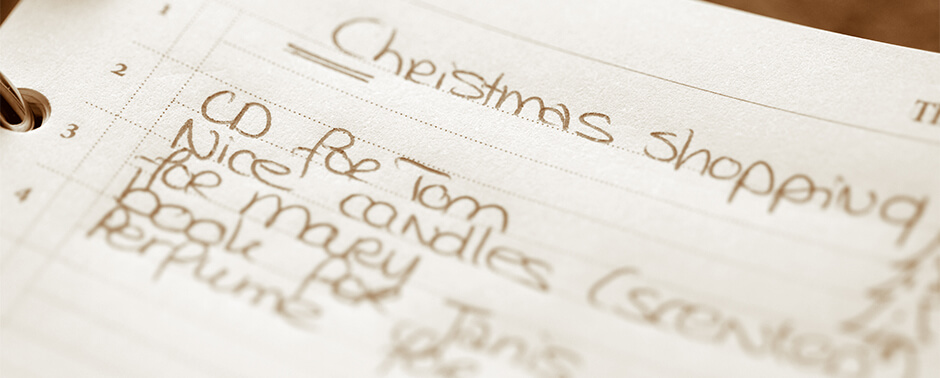 1
Th
Christmas shopping
2
CD for Tom
3
Nice candles (scented)
for mary
4
Book for Janis
Perfume for